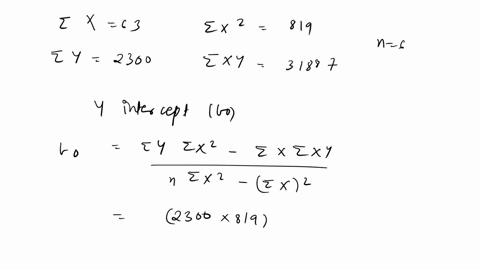 Σ X = 63 Σ X² = 819
n=6
Σ Y = 2300 Σ XY = 31887
Y intercept (b0)
b0 = ΣY ΣX² - Σ X Σ XY
n ΣX² - (ΣX)²
= (2300 × 819)